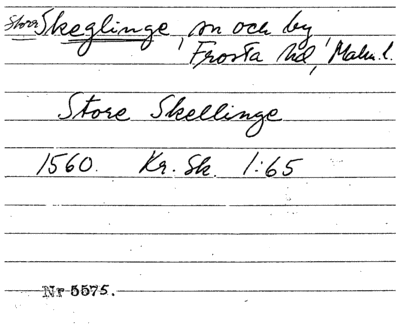 Stora Skeglinge, sn och by,
Frosta hd, Malm. l.
Store Skellinge
1560. Kr. Sk. 1:65
Nr 5575.